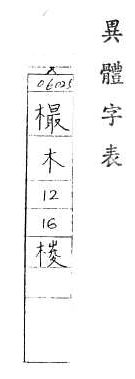 異體字表
06025
樶
木
12
16